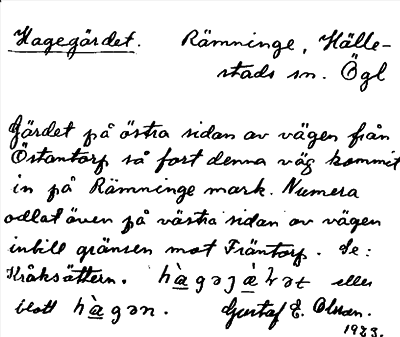 Hagegärdet. Rämninge, Hälle-
stads sn. Ögl
Gärdet på östra sidan av vägen från
Östantorp så fort denna väg kommit
in på Rämninge mark. Numera
odlat även på västra sidan av vägen
intill gränsen mot Fräntorp. Se:
Kråksättern. eller
blott hàgən. Gustaf E. Olsson.
1923.